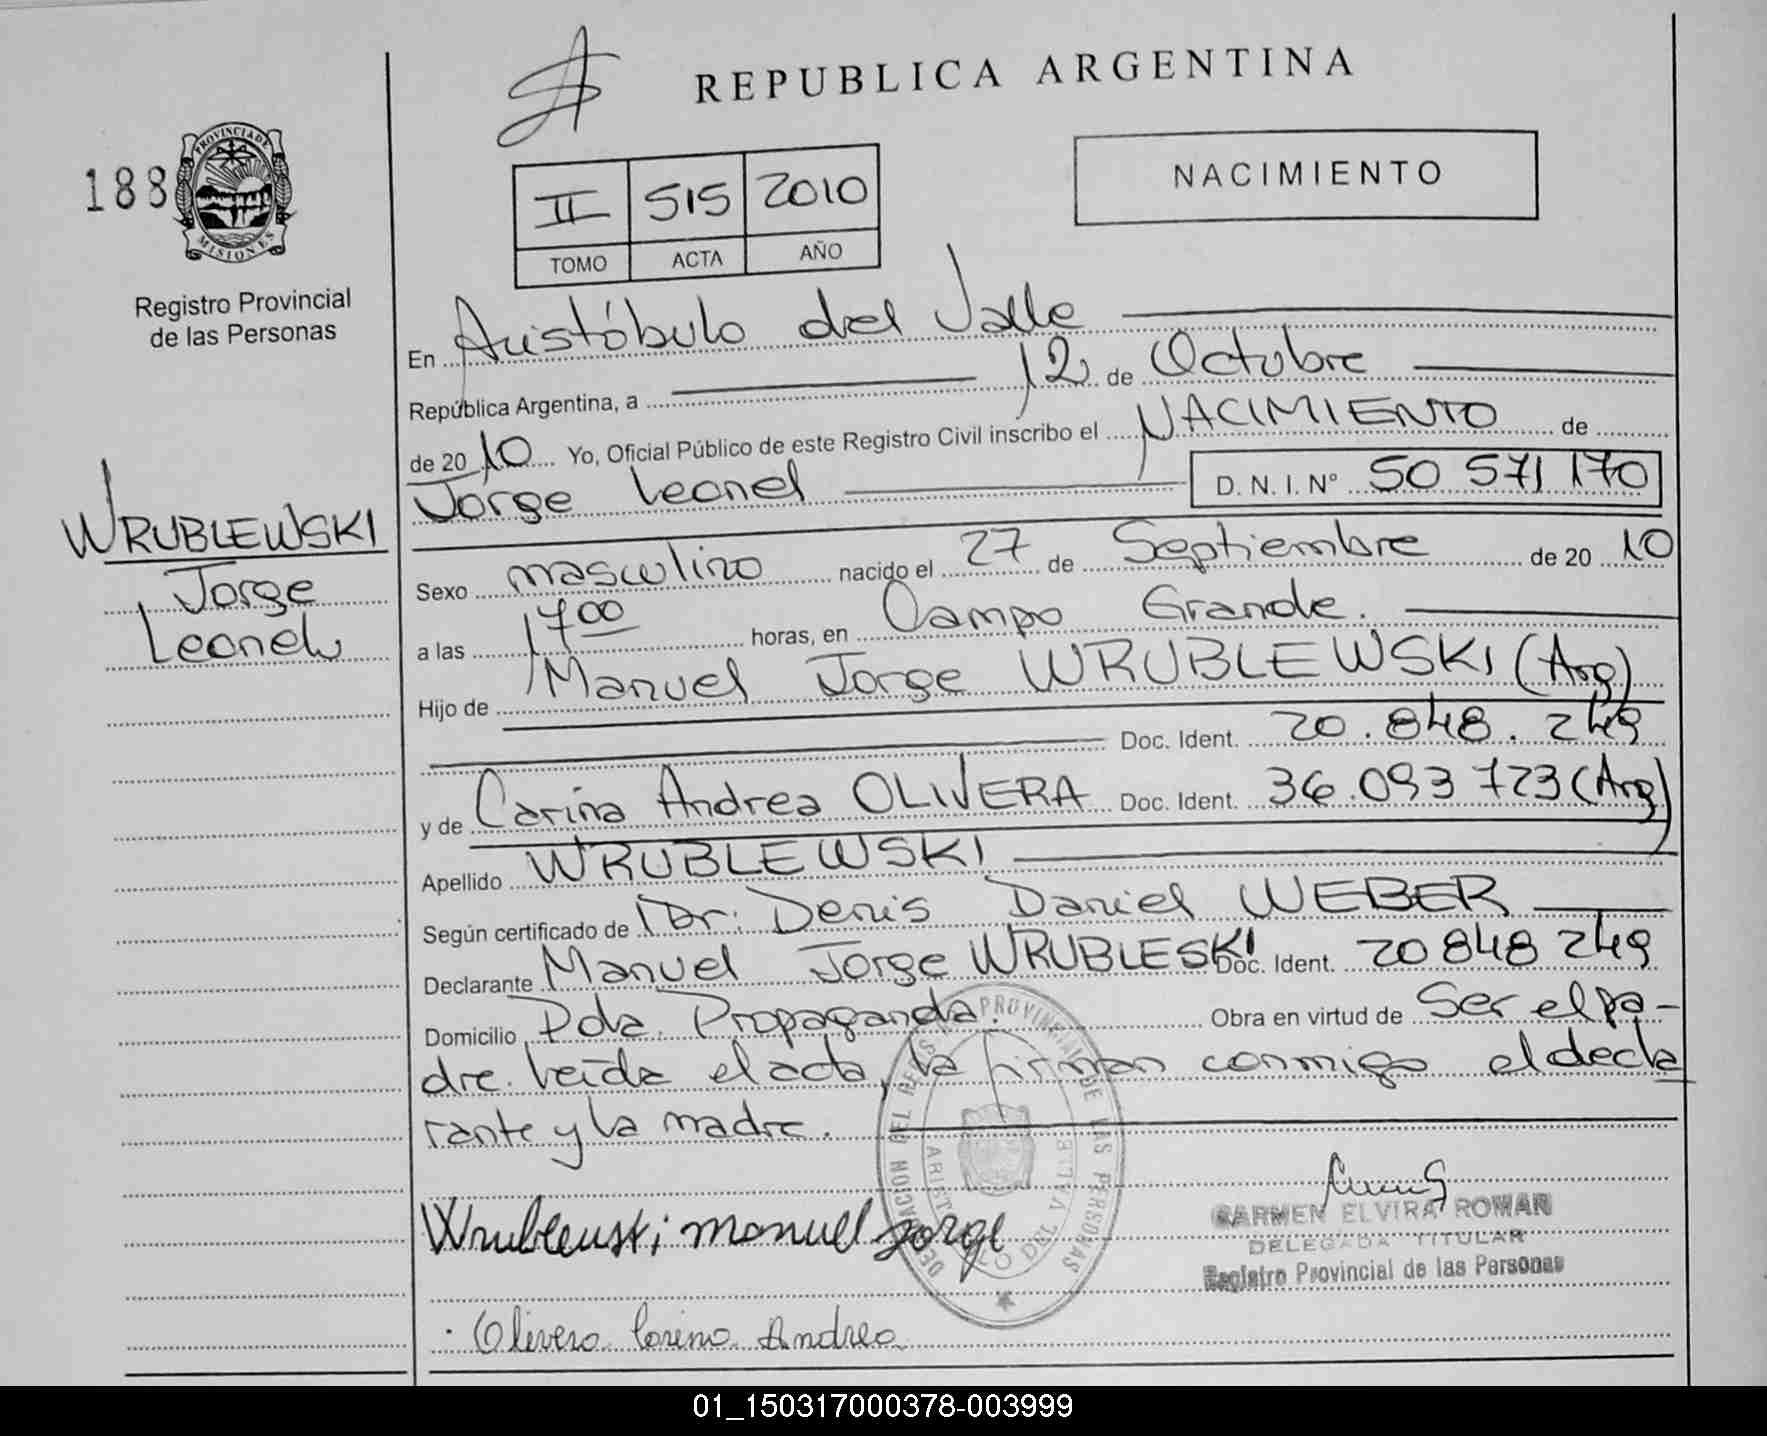 REPUBLICA ARGENTINA
188
PROVINCIA DE
MISIONES
Registro Provincial
de las Personas
II 515 2010
TOMO ACTA AÑO
NACIMIENTO
En Aristóbulo del Valle
República Argentina, a 12 de Octubre
de 2010 Yo, Oficial Público de este Registro Civil inscribo el NACIMIENTO de
Jorge Leonel D. N. I. N° 50 571 170
WRUBLEWSKI
Jorge
Leonel
Sexo masculino nacido el 27 de Septiembre de 2010
a las 1700 horas, en Campo Grande.
Hijo de Manuel Jorge WRUBLEWSKI (Arg)
Doc. Ident. 20.848.249
y de Carina Andrea OLIVERA Doc. Ident. 36.093 723 (Arg)
Apellido WRUBLEWSKI
Según certificado de Dr. Denis Daniel WEBER
Declarante Manuel Jorge WRUBLESKI Doc. Ident. 20 848 249
Domicilio Pda. Propaganda. Obra en virtud de Ser el pa-
dre. Leída el acta, la firman conmigo el decla
rante y la madre.
Wrubleuski manuel Jorge
CARMEN ELVIRA ROMAN
DELEGADA TITULAR
Registro Provincial de las Personas
Olivera Carina Andrea
01_150317000378-003999